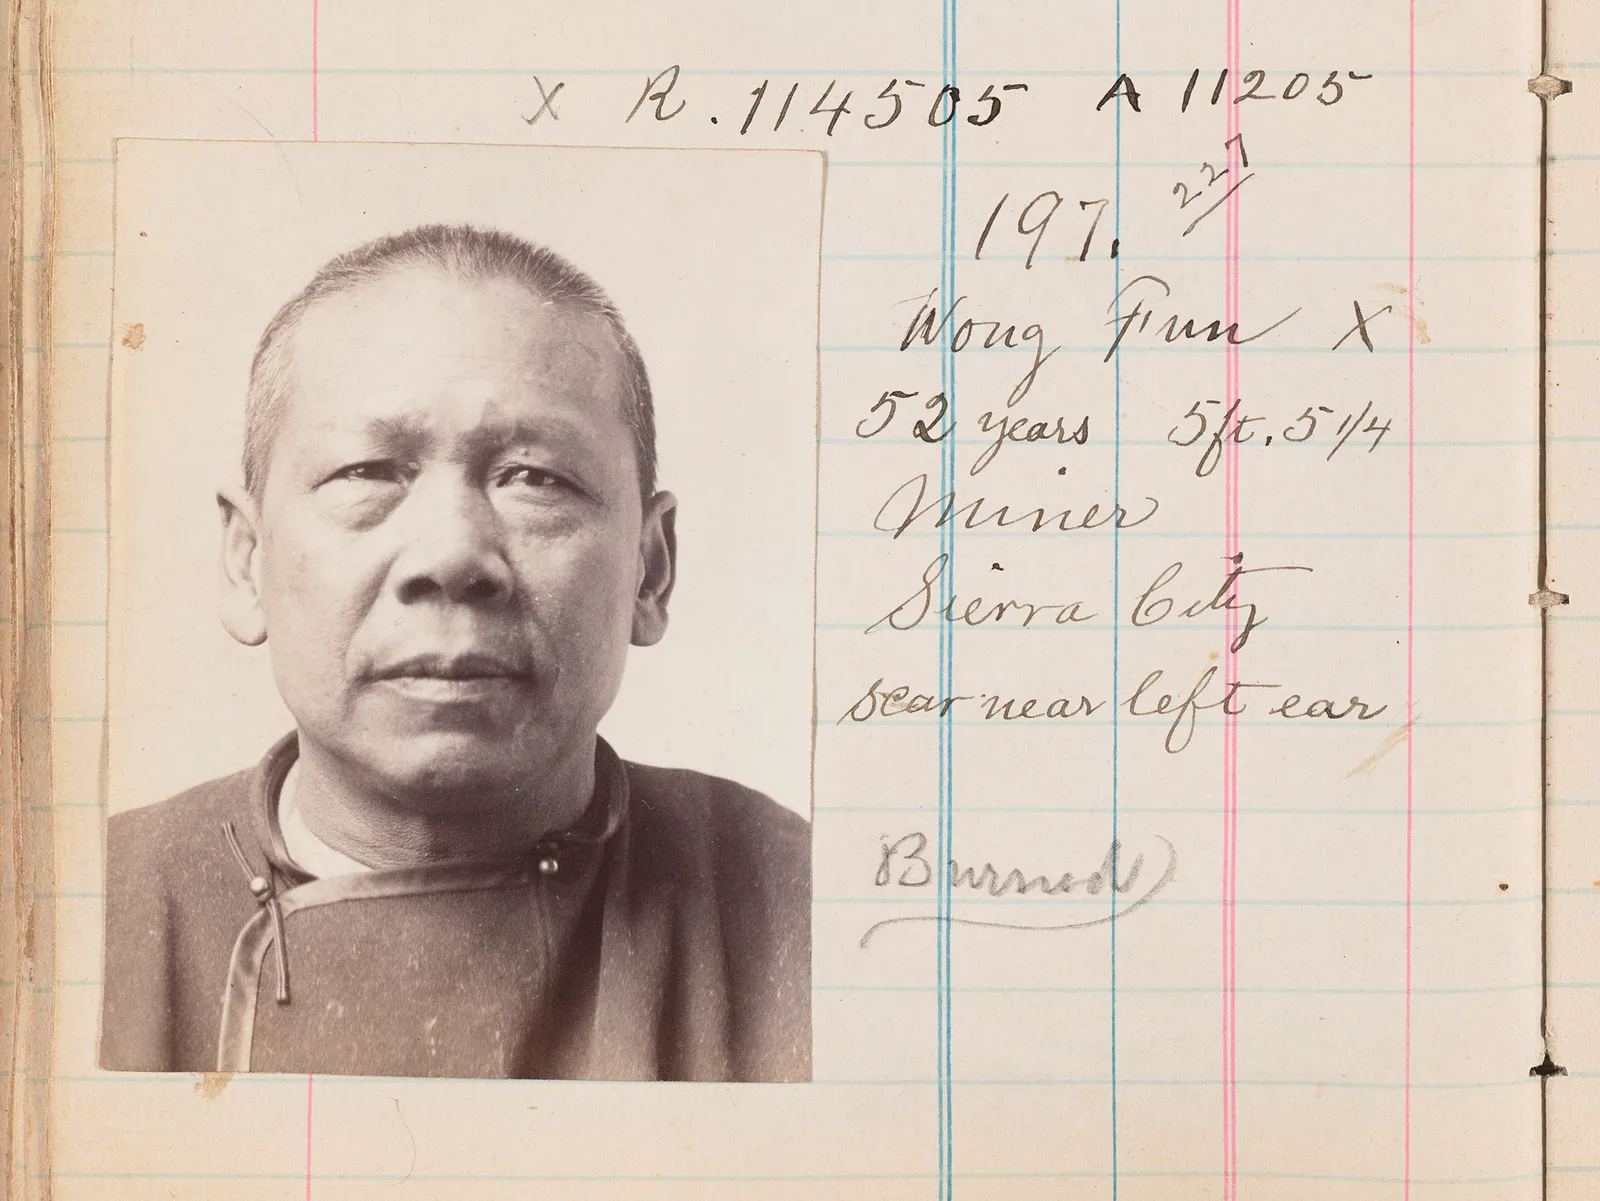 X R. 114505 A 11205
227/
197.
Wong Fun X
52 years 5ft. 5 1/4
Miner
Sierra City
scar near left ear